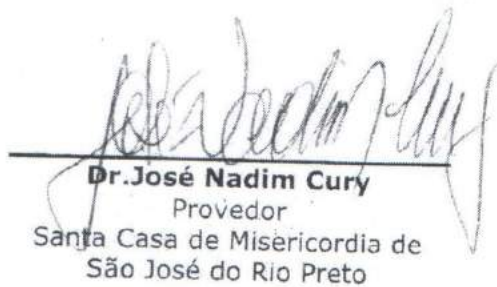 José Nadim Cury
Dr.José Nadim Cury
Provedor
Santa Casa de Misericordia de
São José do Rio Preto